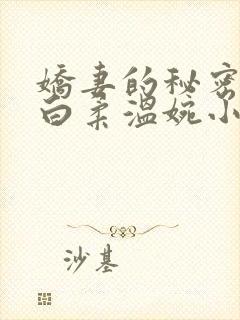 嬌妻的秘密
白柔溫婉小
沙基